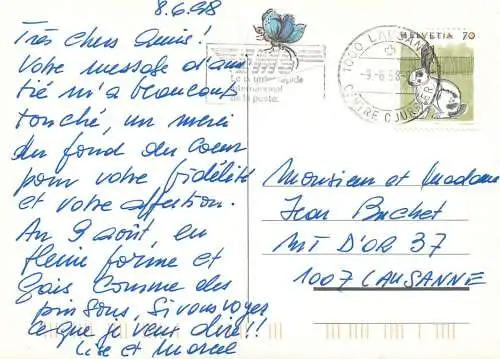 8.6.98
Très chers Amis!
Votre message d'ami
tié m'a beaucoup
touché, un merci
du fond du coeur
pour votre fidélité
et votre affection.
Au 9 août, en
pleine forme et
gais comme des
pinsons, si vous voyez
ce que je veux dire!!
Lise et Marcel
EMS
international
de la poste.
1000 LAUSANNE
-9.-6.98-
CENTRE COURRIER
HELVETIA 70
Monsieur et Madame
Jean Buchet
MT D'OR 37
1007 LAUSANNE